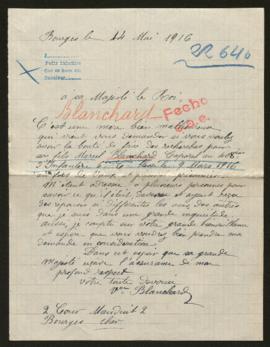 Bourges le 14 Mai 1916
22 640
a sa Majesté le Roi
Blanchard
Fecho
C'est une mere bien malheureuse
qui vient vous demander si vous voulez
avoir la bonté de faire des recherches pour
son fils Marcel Blanchard Caporal au 408e
d'Infanterie 9 Mars 1916
M'étant adressé à plusieurs personnes pour
savoir ce qu'il était devenu et ayant reçu
des réponses si différentes les unes des autres
que je suis dans une grande inquiétude
aussi, je compte sur votre grande
et espère que vous voudrez bien prendre ma
demande en considération.
Dans cet espoir que sa grande
majesté reçoive l'assurance de mon
profond respect
votre toute dévouée
Vve Blanchard
2 Cour Manduit 2
Bourges Cher